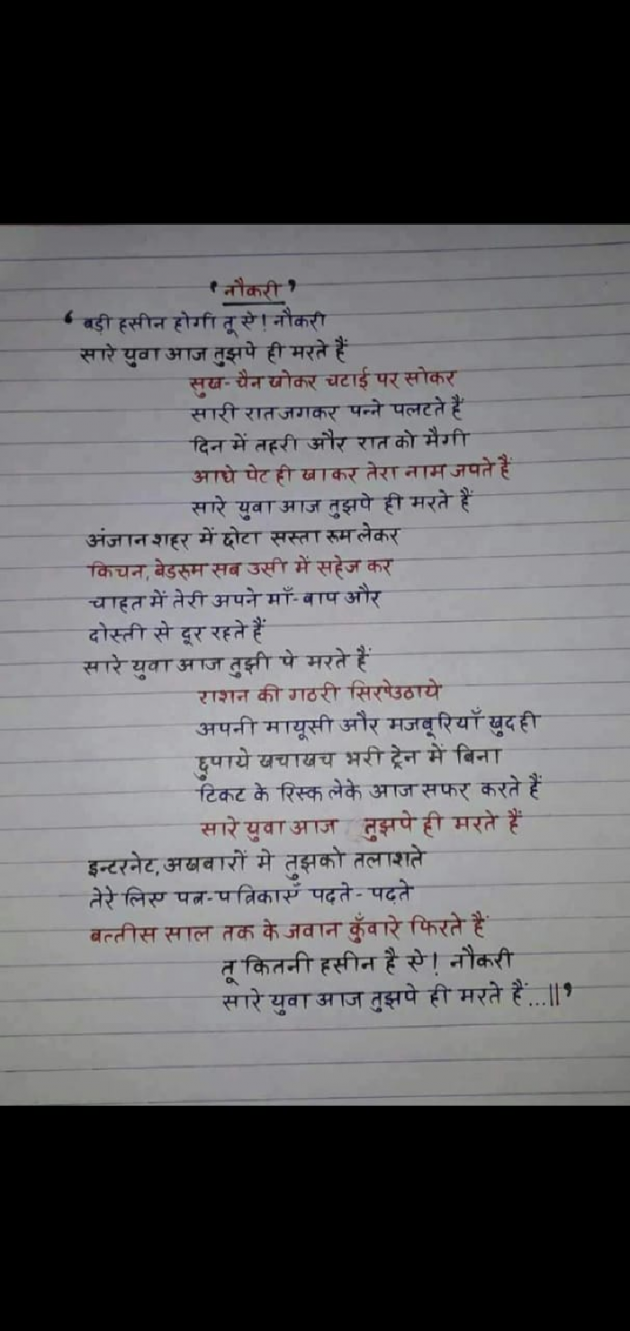 ‘ नौकरी ’
‘ बड़ी हसीन होगी तू ऐ! नौकरी
सारे युवा आज तुझपे ही मरते हैं
सुख-चैन खोकर चटाई पर सोकर
सारी रात जगकर पन्ने पलटते हैं
दिन में तहरी और रात को मैगी
आधे पेट ही खाकर तेरा नाम जपते हैं
सारे युवा आज तुझपे ही मरते हैं
अंजान शहर में छोटा सस्ता रूम लेकर
किचन, बेडरूम सब उसी में सहेज कर
चाहत में तेरी अपने माँ-बाप और
दोस्ती से दूर रहते हैं
सारे युवा आज तुझी पे मरते हैं
राशन की गठरी सिरपेउठाये
अपनी मायूसी और मजबूरियाँ खुद ही
छुपाये खचाखच भरी ट्रेन में बिना
टिकट के रिस्क लेके आज सफर करते हैं
सारे युवा आज तुझपे ही मरते हैं
इन्टरनेट, अखबारों मे तुझको तलाशते
तेरे लिए पत्र-पत्रिकाएँ पढ़ते-पढ़ते
बत्तीस साल तक के जवान कुँवारे फिरते हैं
तू कितनी हसीन है ऐ! नौकरी
सारे युवा आज तुझपे ही मरते हैं...||’